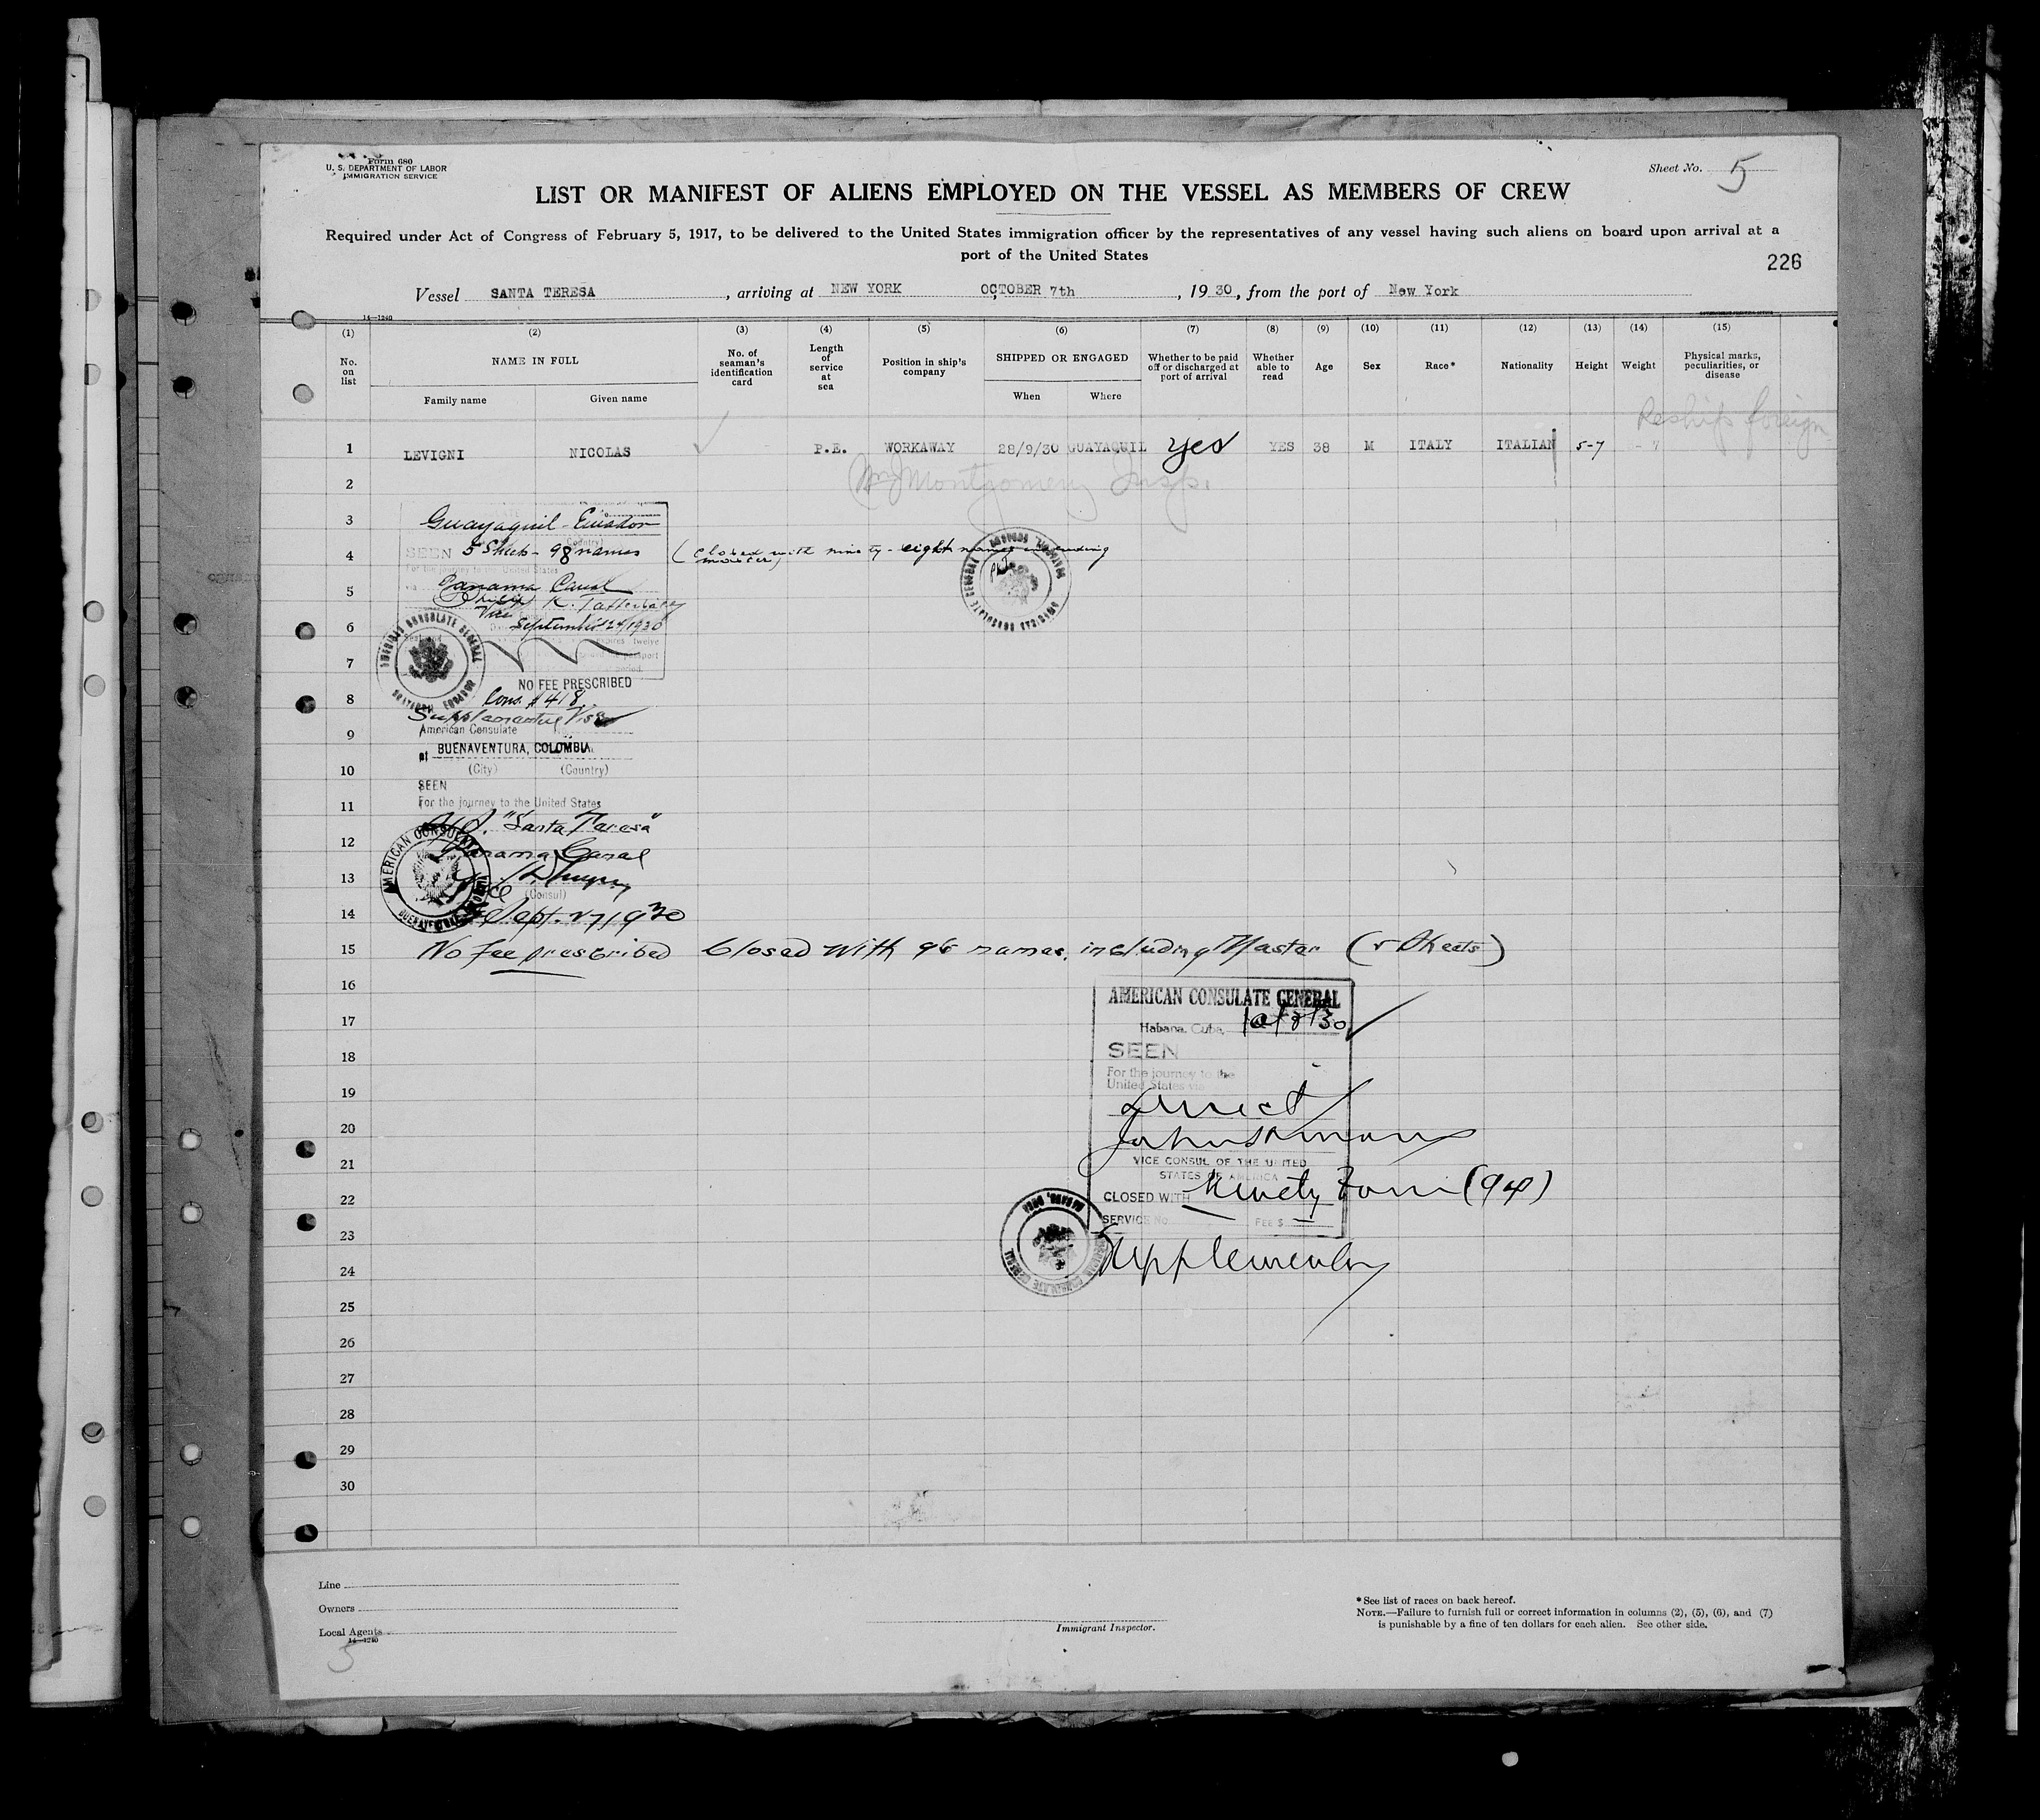 Form 680
U. S. DEPARTMENT OF LABOR
IMMIGRATION SERVICE
Sheet No. 5
LIST OR MANIFEST OF ALIENS EMPLOYED ON THE VESSEL AS MEMBERS OF CREW
Required under Act of Congress of February 5, 1917, to be delivered to the United States immigration officer by the representatives of any vessel having such aliens on board upon arrival at a
port of the United States
226
Vessel SANTA TERESA, arriving at NEW YORK OCTOBER 7th, 1930, from the port of New York
14—1240
(1) (2) (3) (4) (5) (6) (7) (8) (9) (10) (11) (12) (13) (14) (15)
No. on list
NAME IN FULL
Family name Given name
No. of seaman's identification card
Length of service at sea
Position in ship's company
SHIPPED OR ENGAGED
When Where
Whether to be paid off or discharged at port of arrival
Whether able to read
Age
Sex
Race*
Nationality
Height
Weight
Physical marks, peculiarities, or disease
Reships foreign
1 LEVIGNI NICOLAS P.E. WORKAWAY 28/9/30 GUAYAQUIL yes YES 38 M ITALY ITALIAN 5-7
2 Montgomery Insp.
3 Guayaquil - Ecuador
4 SEEN 5 Sheets - 98 names (Closed with ninety-eight names including master)
For the journey to the United States
5 via Panama Canal
Philip K.
Vice
6 September 1930
7
NO FEE PRESCRIBED
8 Cons. 418
Supplementary Visa
9 American Consulate
at BUENAVENTURA, COLOMBIA.
10 (City) (Country)
SEEN
11 For the journey to the United States
"Santa Teresa"
12 Panama Canal
13
(Consul)
AMERICAN CONSULATE
14 Sept. 27 1930
15 No fee prescribed Closed with 98 names, including Master (5 Sheets)
16 AMERICAN CONSULATE GENERAL
17 Habana, Cuba,
18 SEEN
For the journey to the
United States via
19 direct
20
21 VICE CONSUL OF THE UNITED
STATES OF AMERICA
22 CLOSED WITH Ninety Four (94)
SERVICE No. FEE $
23
24 Supplementary
25
26
27
28
29
30
Line
Owners
Local Agents
14—1240
5
Immigrant Inspector.
*See list of races on back hereof.
NOTE.—Failure to furnish full or correct information in columns (2), (5), (6), and (7)
is punishable by a fine of ten dollars for each alien. See other side.